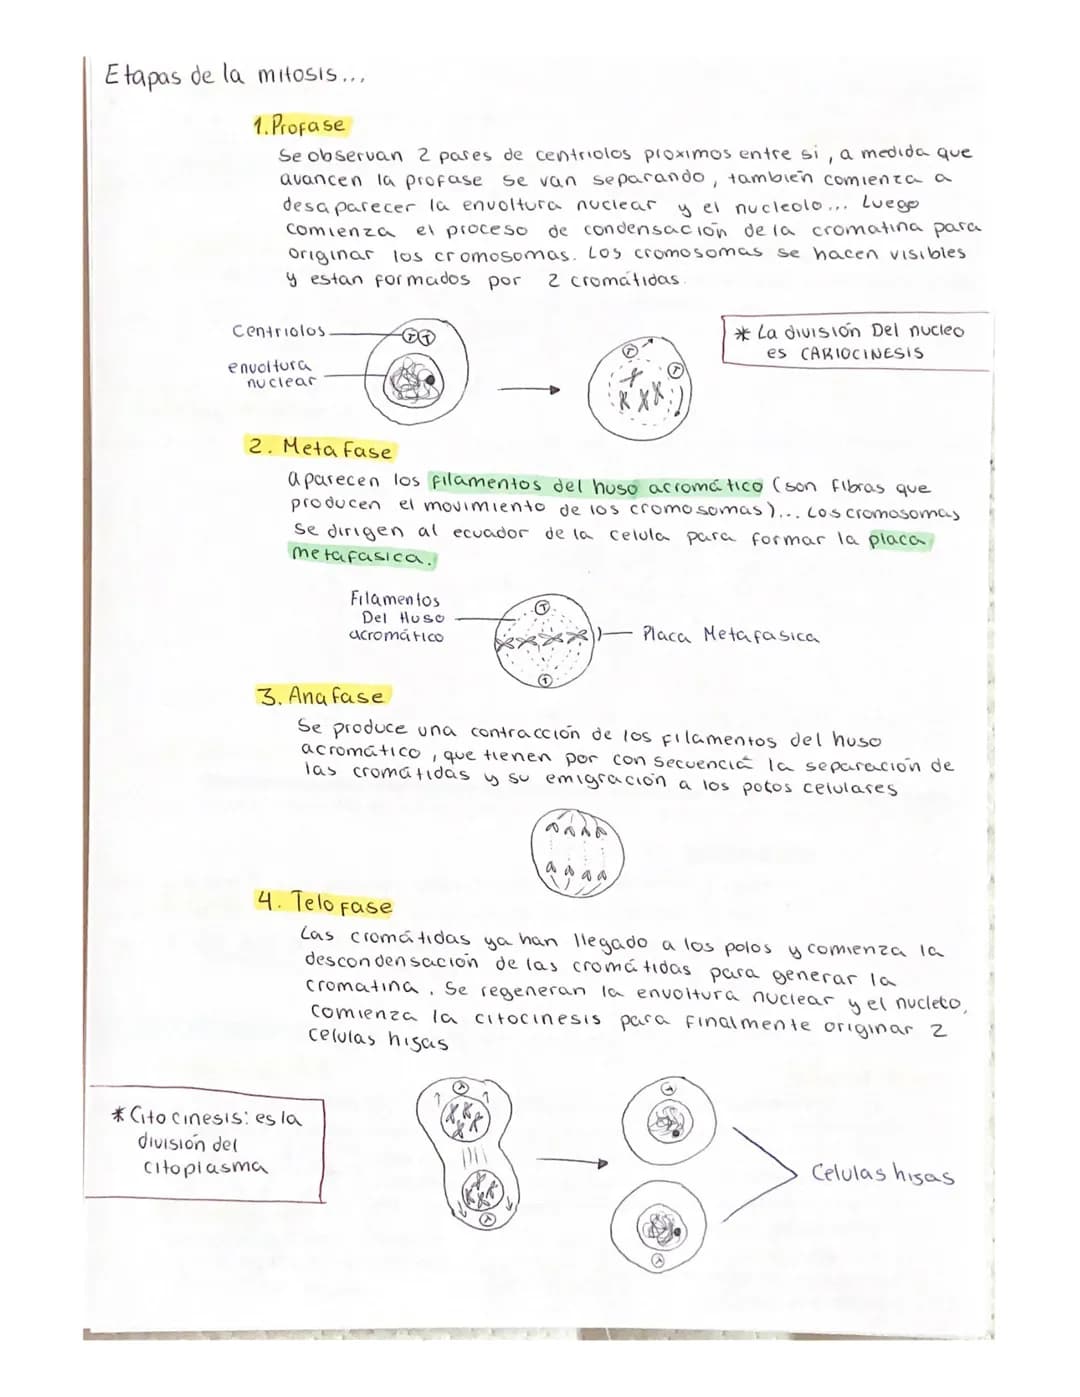 Etapas de la mitosis...
1. Profase
Se observan 2 pares de centriolos proximos entre si, a medida que
avancen la profase se van separando, también comienza a
desaparecer la envoltura nuclear y el nucleolo... Luego
comienza el proceso de condensación de la cromatina para
originar los cromosomas. Los cromosomas se hacen visibles
y estan formados por 2 cromátidas.
Centriolos
envoltura
nuclear
* La división Del nucleo
es CARIOCINESIS
2. Metafase
aparecen los filamentos del huso acromático (son fibras que
producen el movimiento de los cromosomas)... Los cromosomas
se dirigen al ecuador de la celula para formar la placa
metafasica.
Filamentos
Del Huso
acromático
Placa Metafasica
3. Anafase
Se produce una contracción de los filamentos del huso
acromático, que tienen por consecuencia la separación de
las cromátidas y su emigración a los polos celulares
4. Telofase
Las cromátidas ya han llegado a los polos y comienza la
descondensación de las cromátidas para generar la
cromatina. Se regeneran la envoltura nuclear y el nucleolo,
comienza la citocinesis para finalmente originar 2
celulas hijas
* Citocinesis: es la
división del
citoplasma
Celulas hijas